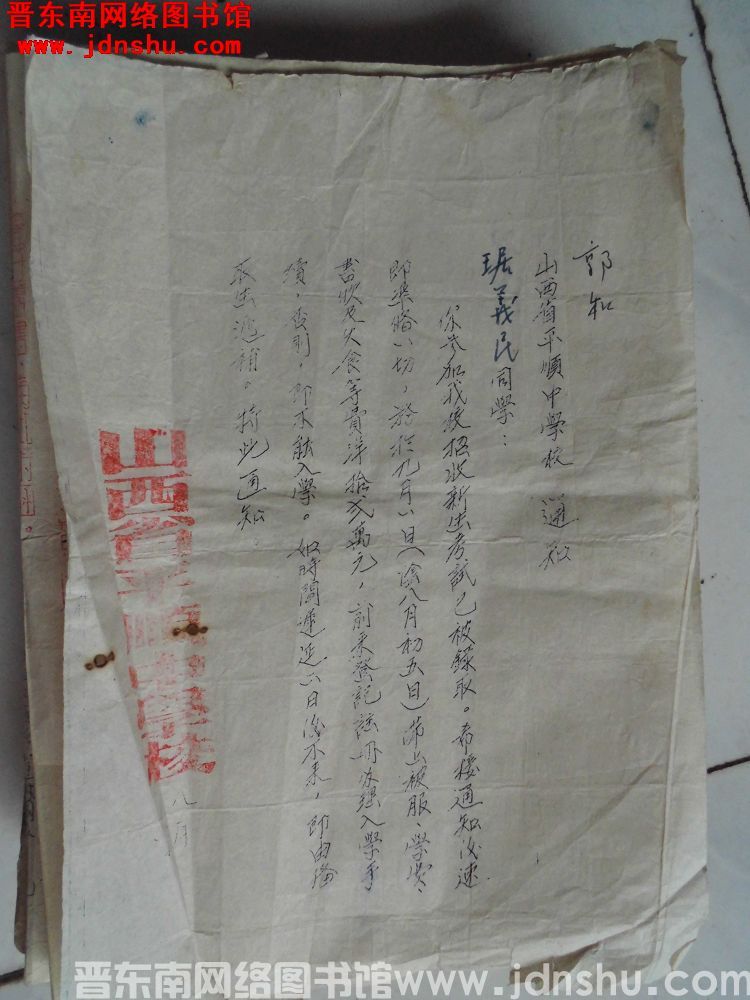 晋东南网络图书馆
www.jdnshu.com
郭和
山西省平順中學校 通知
琚義民同學：
你参加我校招收新生考試已被錄取。希接通知後速
即準備一切，務於九月一日（陰八月初五日）帶上被服、學費、
書款及火食等費洋拾弍萬元，前來登記註冊办理入學手
續，否則，即不能入學。如時間遲延二日後不來，即由備
取生遞補。特此通知
山西省平順中學校
八月
晋东南网络图书馆 www.jdnshu.com